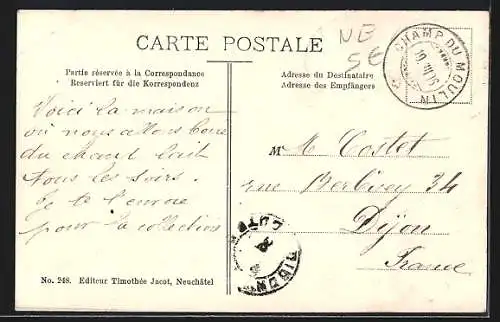 CARTE POSTALE
NE
SE
CHAMP DU MOULIN
Partie réservée à la Correspondance
Reserviert für die Korrespondenz
Adresse du Destinataire
Adresse des Empfängers
Voici la maison
où nous allons boire
du chaud lait
tous les soirs.
Je te l'envoie
pour la collection
M M Costet
rue Berbisey 34
Dijon
France
DIJON
COTE
No. 248. Editeur Timothée Jacot, Neuchâtel